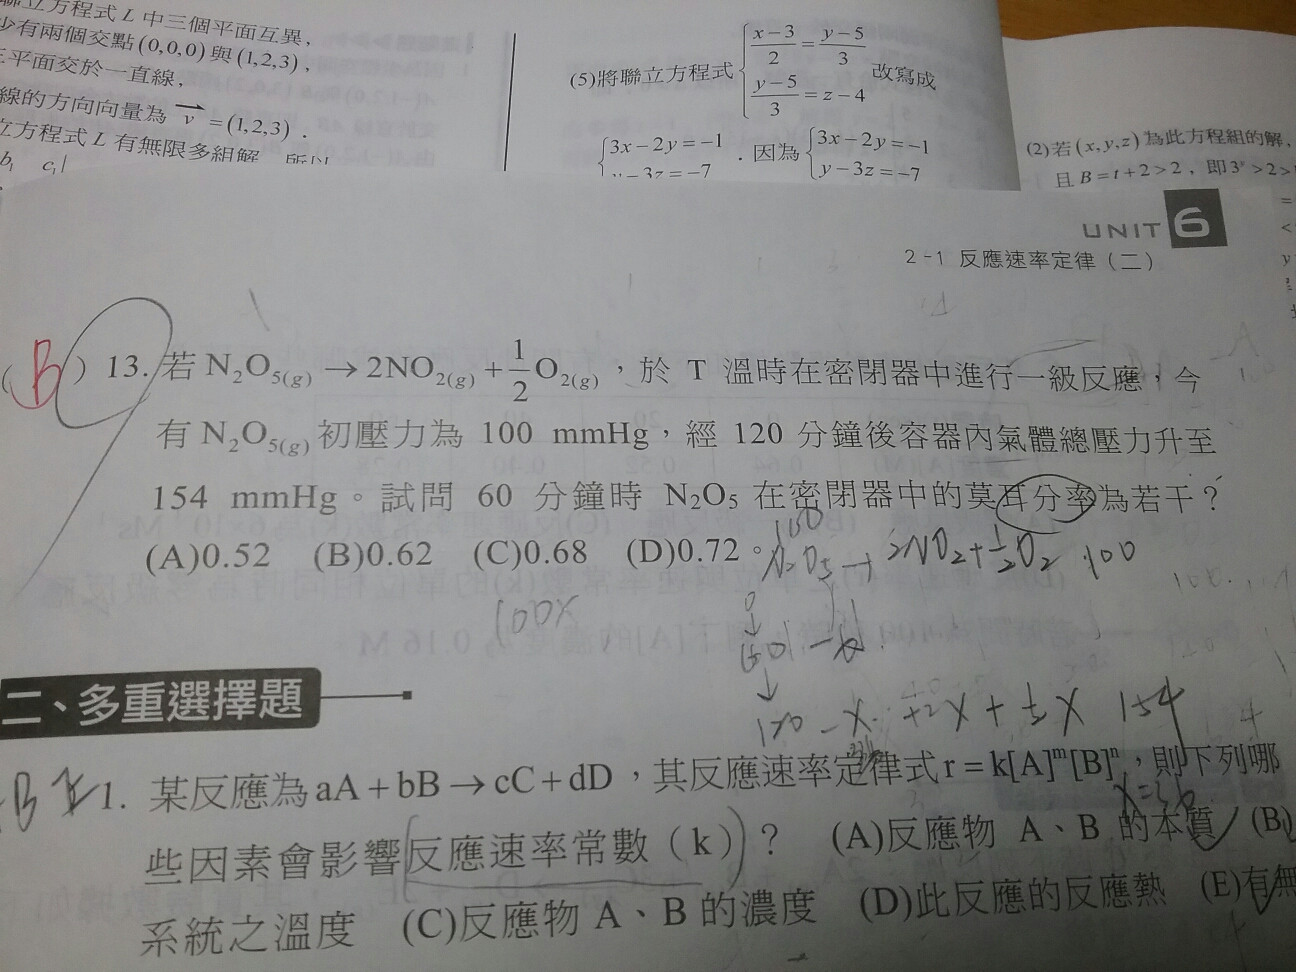 聯立方程式 L 中三個平面互異，
少有兩個交點(0,0,0)與(1,2,3)，
三平面交於一直線，
線的方向向量為 v = (1,2,3)．
立方程式 L 有無限多組解
b₁ c₁|
(5)將聯立方程式 { (x−3)/2 = (y−5)/3 改寫成
(y−5)/3 = z−4
{ 3x−2y=−1 ．因為 { 3x−2y=−1
y−3z=−7 y−3z=−7
(2)若(x,y,z)為此方程組的解，
且 B=t+2>2，即
UNIT 6
2-1 反應速率定律（二）
( B ) 13. 若 N₂O₅(g) → 2NO₂(g) + 1/2 O₂(g)，於 T 溫時在密閉器中進行一級反應，今
有 N₂O₅(g) 初壓力為 100 mmHg，經 120 分鐘後容器內氣體總壓力升至
154 mmHg。試問 60 分鐘時 N₂O₅ 在密閉器中的莫耳分率為若干？
(A)0.52 (B)0.62 (C)0.68 (D)0.72。
100
N₂O₅ → 2NO₂ + ½O₂ 100
100x
100 − x +2x + ½x 154
x=36
二、多重選擇題
1. 某反應為 aA + bB → cC + dD，其反應速率定律式 r = k[A]ᵐ[B]ⁿ，則下列哪
些因素會影響反應速率常數（k）？ (A)反應物 A、B 的本質 (B)
系統之溫度 (C)反應物 A、B 的濃度 (D)此反應的反應熱 (E)有無